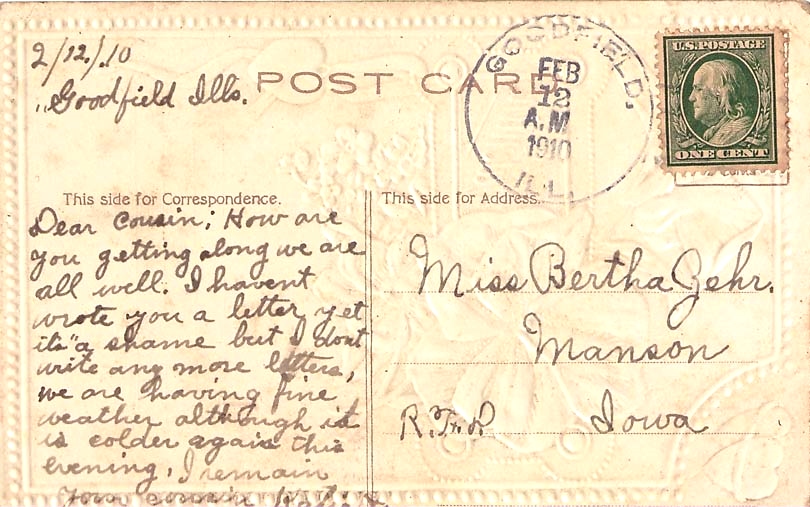 2/12./.10
Goodfield Ills.
POST CARD
GOODFIELD.
FEB
12
A.M
1910
ILL.
U.S. POSTAGE
ONE CENT
This side for Correspondence.
Dear Cousin; How are
you getting along we are
all well. I havent
wrote you a letter yet
its "a shame but I dont
write any more letters,
we are having fine
weather although it
is colder again this
evening, I remain
your cousin
This side for Address.
Miss Bertha Zehr.
Manson
R.F.D. Iowa